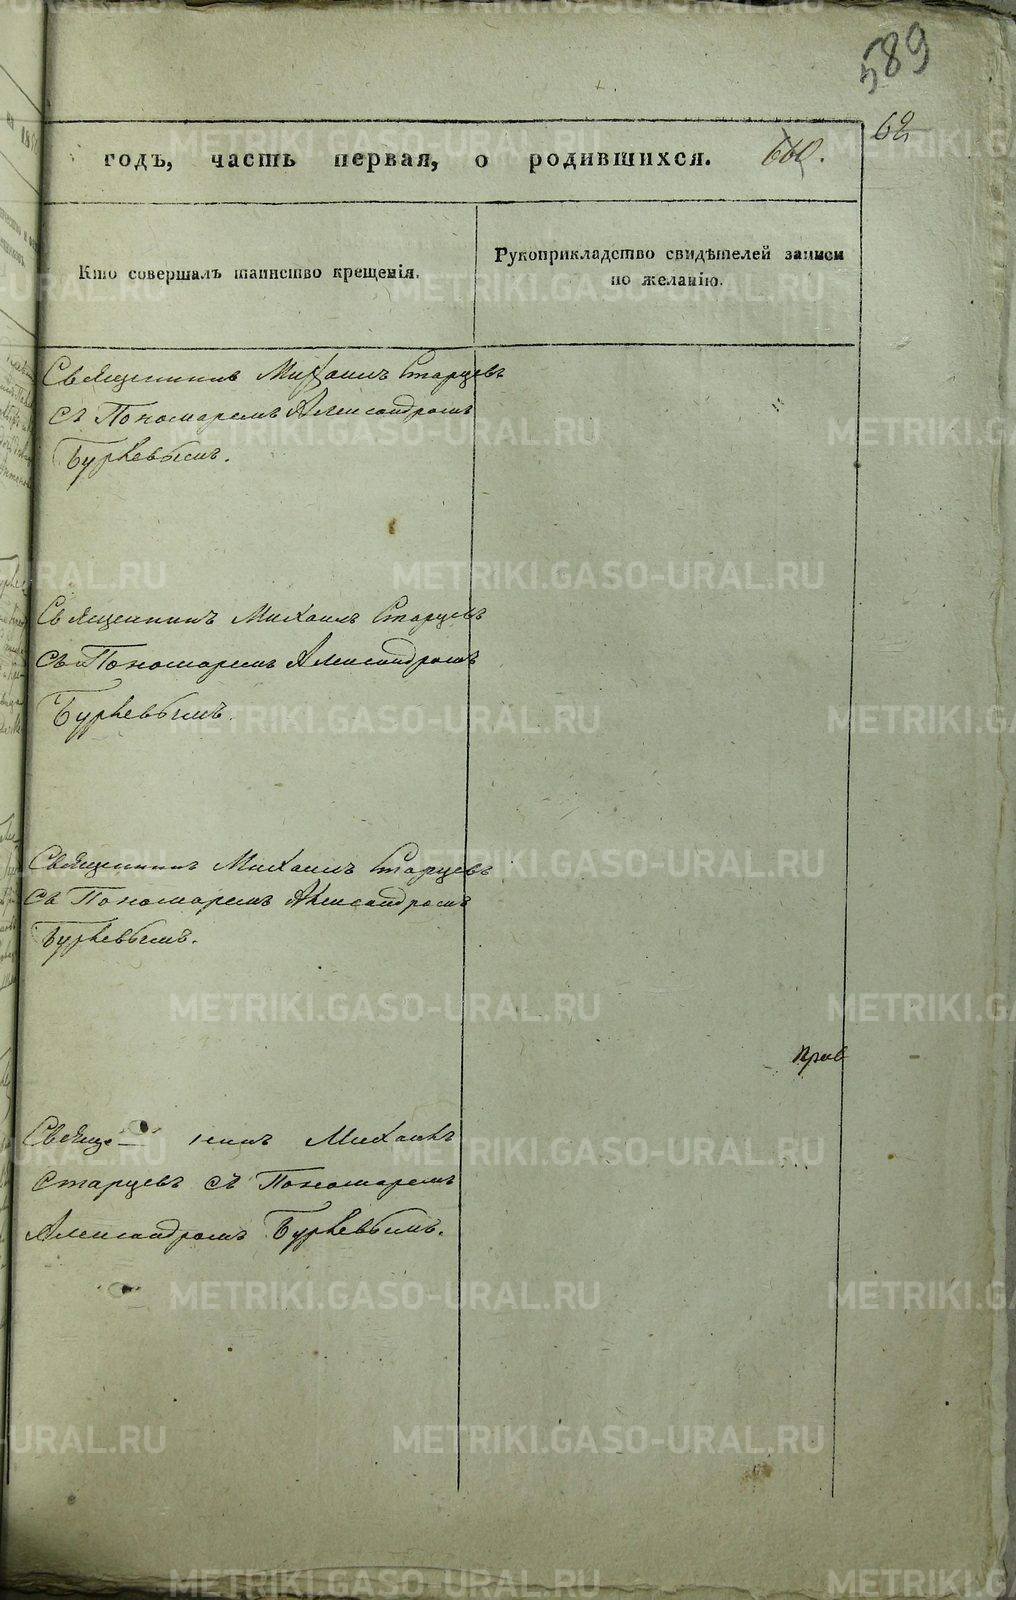 589
62
годъ, часть первая, о родившихся. 660.
Кто совершалъ таинство крещенія.
Рукоприкладство свидѣтелей записи
по желанію.
Священникъ Михаилъ Старцевъ
съ Пономаремъ Александромъ
Буркевымъ.
Священникъ Михаилъ Старцевъ
съ Пономаремъ Александромъ
Буркевымъ.
Священникъ Михаилъ Старцевъ
съ Пономаремъ Александромъ
Буркевымъ.
Прав
Священникъ Михаилъ
Старцевъ съ Пономаремъ
Александромъ Буркевымъ.
METRIKI.GASO-URAL.RU